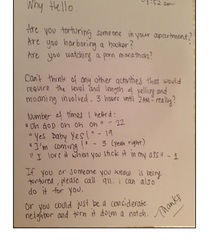 Why Hello.
Are you torturing someone in your apartment?
Are you harboring a hooker?
Are you watching a porn marathon?
Can't think of any other activities that would
require the level and length of yelling and
moaning involved. 3 hours until 2am - really?
Number of times I heard:
"Oh GOD oh oh oh" - 22
"Yes Baby Yes!" - 19
"I'm coming!" - 3 (yeah right)
"I love it when you stick it in my ass" - 1
If you or someone you know is being
tortured, please call 911. I can also
do it for you.
Or you could just be a considerate
neighbor and turn it down a notch.
Thanks